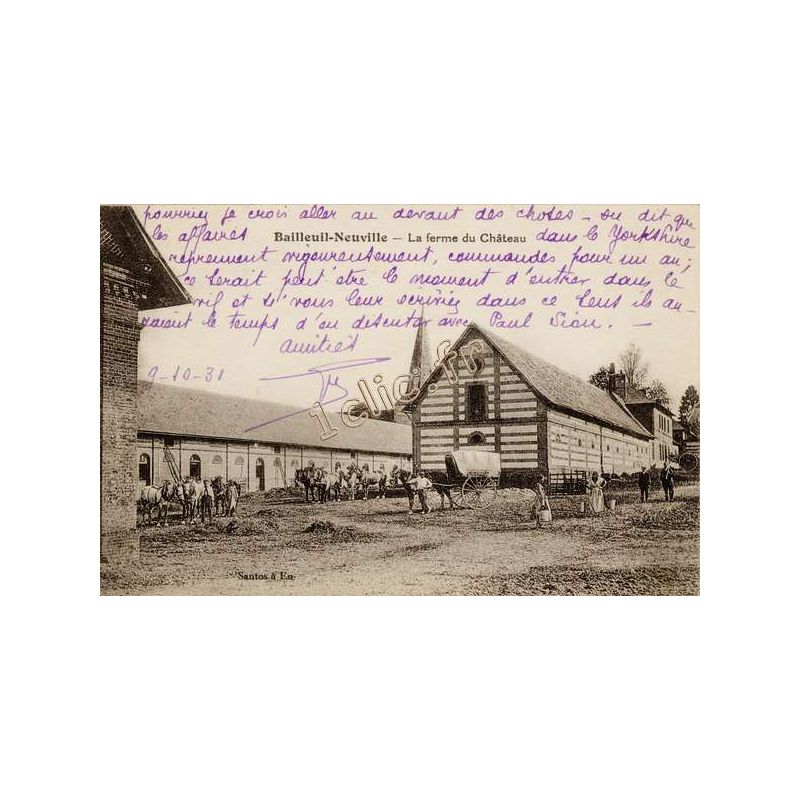 pourriez je crois aller au devant des choses - on dit que
les affaires
Bailleuil-Neuville — La ferme du Château
dans le Yorkshire
reprennent vigoureusement, commandes pour un an;
ce serait peut être le moment d'entrer dans le
vif et si vous leur écriviez dans ce sens ils au-
raient le temps d'en discuter avec Paul Sion. —
amitiés
9-10-31
1clic1.fr
Santos à Eu